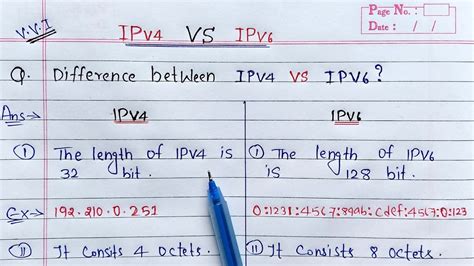 V.V.I
IPV4 VS IPV6
Page No. :
Date : / /
Q. Difference between IPV4 VS IPV6?
Ans→
IPV4
① The length of IPV4 is
32 bit.
Ex→ 192.210.0.251
② It Consits 4 Octets.
IPV6
① The length of IPV6
is 128 bit.
0:1231:4567:89ab:cdef:4567:0:123
② It Consists 8 Octets.